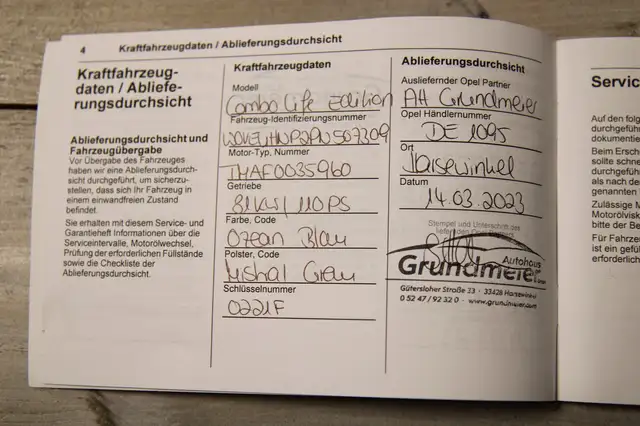 4 Kraftfahrzeugdaten / Ablieferungsdurchsicht
Kraftfahrzeug-
daten / Abliefe-
rungsdurchsicht
Ablieferungsdurchsicht und
Fahrzeugübergabe
Vor Übergabe des Fahrzeuges
haben wir eine Ablieferungsdurch-
sicht durchgeführt, um sicherzu-
stellen, dass sich Ihr Fahrzeug in
einem einwandfreien Zustand
befindet.
Sie erhalten mit diesem Service- und
Garantieheft Informationen über die
Serviceintervalle, Motorölwechsel,
Prüfung der erforderlichen Füllstände
sowie die Checkliste der
Ablieferungsdurchsicht.
Kraftfahrzeugdaten
Modell
Combo Life Edition
Fahrzeug-Identifizierungsnummer
Motor-Typ, Nummer
THAF0035960
Getriebe
81KW/110PS
Farbe, Code
Ozean Blau
Polster, Code
Mistral Grau
Schlüsselnummer
0221F
Ablieferungsdurchsicht
Ausliefernder Opel Partner
AH Grundmeier
Opel Händlernummer
DE 1095
Ort
Harsewinkel
Datum
14.03.2023
Stempel und Unterschrift des
Autohaus
Grundmeier
Gütersloher Straße 33 · 33428 Harsewinkel
0 52 47 / 92 32 0 · www.grundmeier.com
Servic
Auf den folg
durchgeführt
dokumentie
Beim Ersch
sollte schne
durchgeführ
als nach de
genannten
Zulässige M
Motorölvisk
bitte der Be
Für Fahrze
ist ein gefü
erforderlich